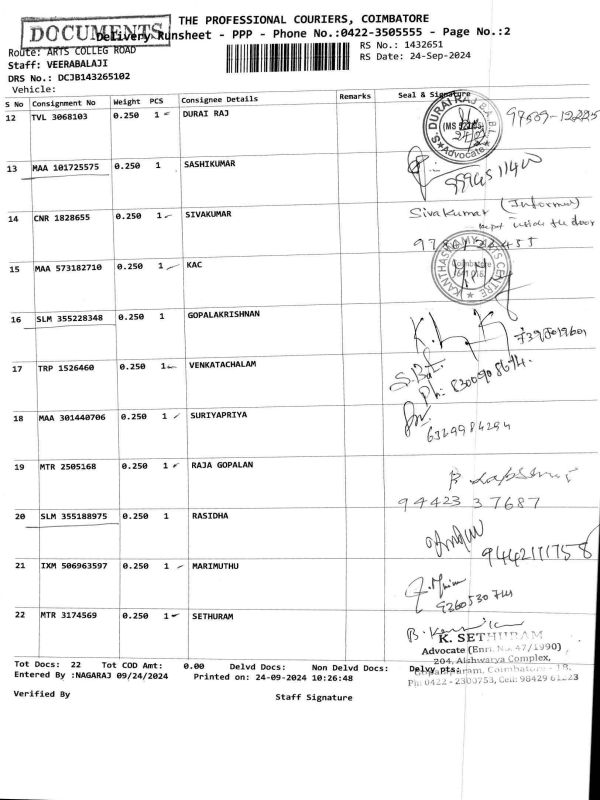 THE PROFESSIONAL COURIERS, COIMBATORE
DOCUMENTS
Delivery Runsheet - PPP - Phone No.:0422-3505555 - Page No.:2
Route: ARTS COLLEG ROAD
RS No.: 1432651
Staff: VEERABALAJI
RS Date: 24-Sep-2024
DRS No.: DCJB143265102
Vehicle:
S No Consignment No Weight PCS Consignee Details Remarks Seal & Signature
12 TVL 3068103 0.250 1 DURAI RAJ
S. DURAI RAJ B.A.B.L.
Advocate
13 MAA 101725575 0.250 1 SASHIKUMAR
14 CNR 1828655 0.250 1 SIVAKUMAR
Sivakumar (Informed)
kept inside the door
15 MAA 573182710 0.250 1 KAC
KANTHASAMY ARTS CENTRE
Coimbatore
16 SLM 355228348 0.250 1 GOPALAKRISHNAN
17 TRP 1526460 0.250 1 VENKATACHALAM
Ph: 8300908674.
18 MAA 301440706 0.250 1 SURIYAPRIYA
6329984294
19 MTR 2505168 0.250 1 RAJA GOPALAN
94423 37687
20 SLM 355188975 0.250 1 RASIDHA
9442111758
21 IXM 506963597 0.250 1 MARIMUTHU
22 MTR 3174569 0.250 1 SETHURAM
K. SETHURAM
Advocate (Enrl. No. 47/1990)
204, Aishwarya Complex,
Gopalapuram, Coimbatore - 18.
Ph: 0422 - 2300753, Cell: 98429
Tot Docs: 22 Tot COD Amt: 0.00 Delvd Docs: Non Delvd Docs: Delvy pts:
Entered By :NAGARAJ 09/24/2024 Printed on: 24-09-2024 10:26:48
Verified By Staff Signature